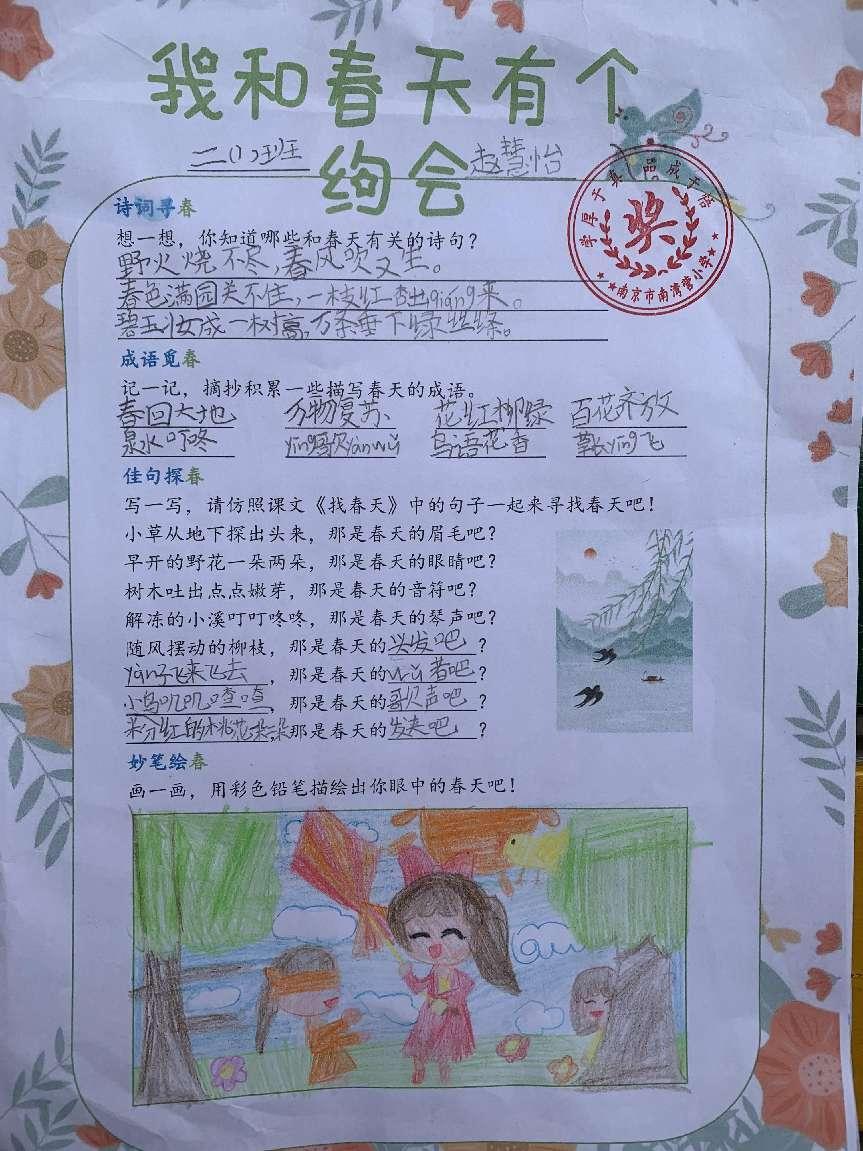 我和春天有个
约会
二(1)班 赵慧怡
学厚于真 品成于悟
奖
南京市南湾营小学
诗词寻春
想一想，你知道哪些和春天有关的诗句？
野火烧不尽，春风吹又生。
春色满园关不住，一枝红杏出qiáng来。
碧玉妆成一树高，万条垂下绿丝绦。
成语觅春
记一记，摘抄积累一些描写春天的成语。
春回大地 万物复苏 花红柳绿 百花齐放
泉水叮咚 yīng歌yànwǔ 鸟语花香 草长yīng飞
佳句探春
写一写，请仿照课文《找春天》中的句子一起来寻找春天吧！
小草从地下探出头来，那是春天的眉毛吧？
早开的野花一朵两朵，那是春天的眼睛吧？
树木吐出点点嫩芽，那是春天的音符吧？
解冻的小溪叮叮咚咚，那是春天的琴声吧？
随风摆动的柳枝，那是春天的头发吧？
yàn子飞来飞去，那是春天的wǔ者吧？
小鸟叽叽喳喳，那是春天的歌声吧？
粉红的桃花朵朵，那是春天的发夹吧？
妙笔绘春
画一画，用彩色铅笔描绘出你眼中的春天吧！